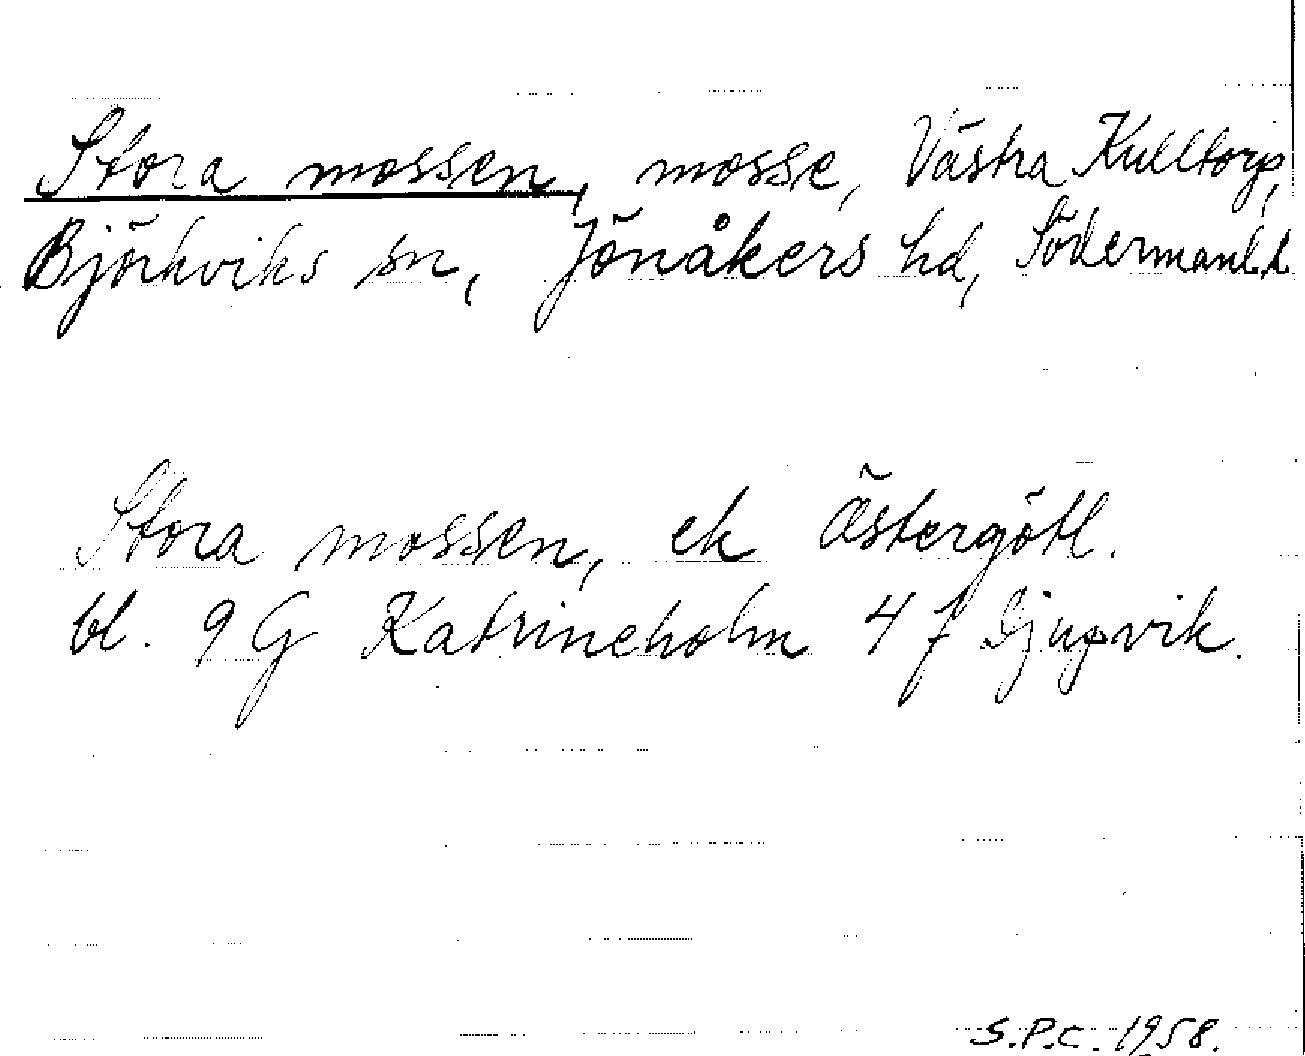 Stora mossen, mosse, Västra Kulltorp,
Björkviks sn, Jönåkers hd, Södermanl.l.
Stora mossen, ek Östergötl.
bl. 9 G Katrineholm 4 f Djupvik.
S.P.C. 1958.